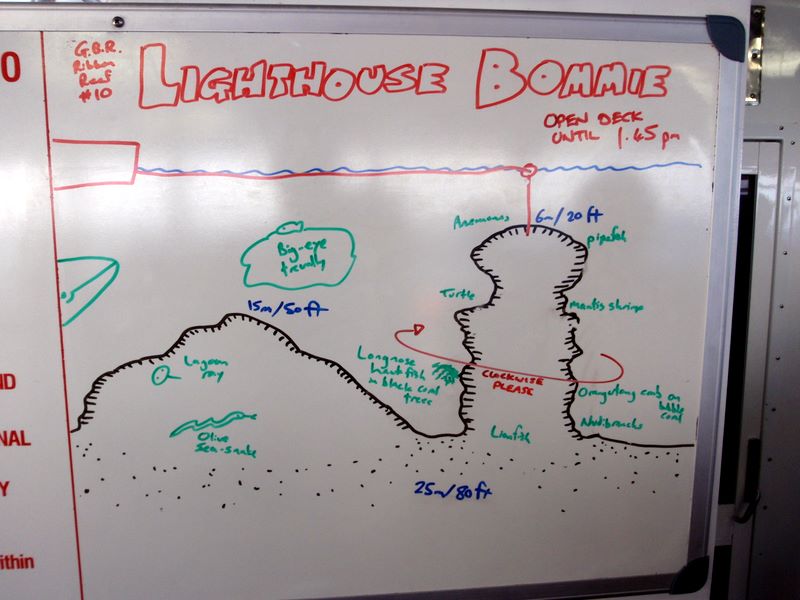 O
G.B.R.
Ribbon
Reef
#10
LIGHTHOUSE BOMMIE
OPEN DECK
UNTIL 1.45 pm
6m/20 ft
Anemones
pipefish
Big-eye
trevally
Turtle
mantis shrimp
15m/50ft
Longnose
hawkfish
in black coral
trees
CLOCKWISE
PLEASE
Lagoon
ray
Orangutang crab on
bubble
coral
Nudibranchs
Lionfish
Olive
Sea-snake
25m/80 ft
ND
NAL
Y
ithin